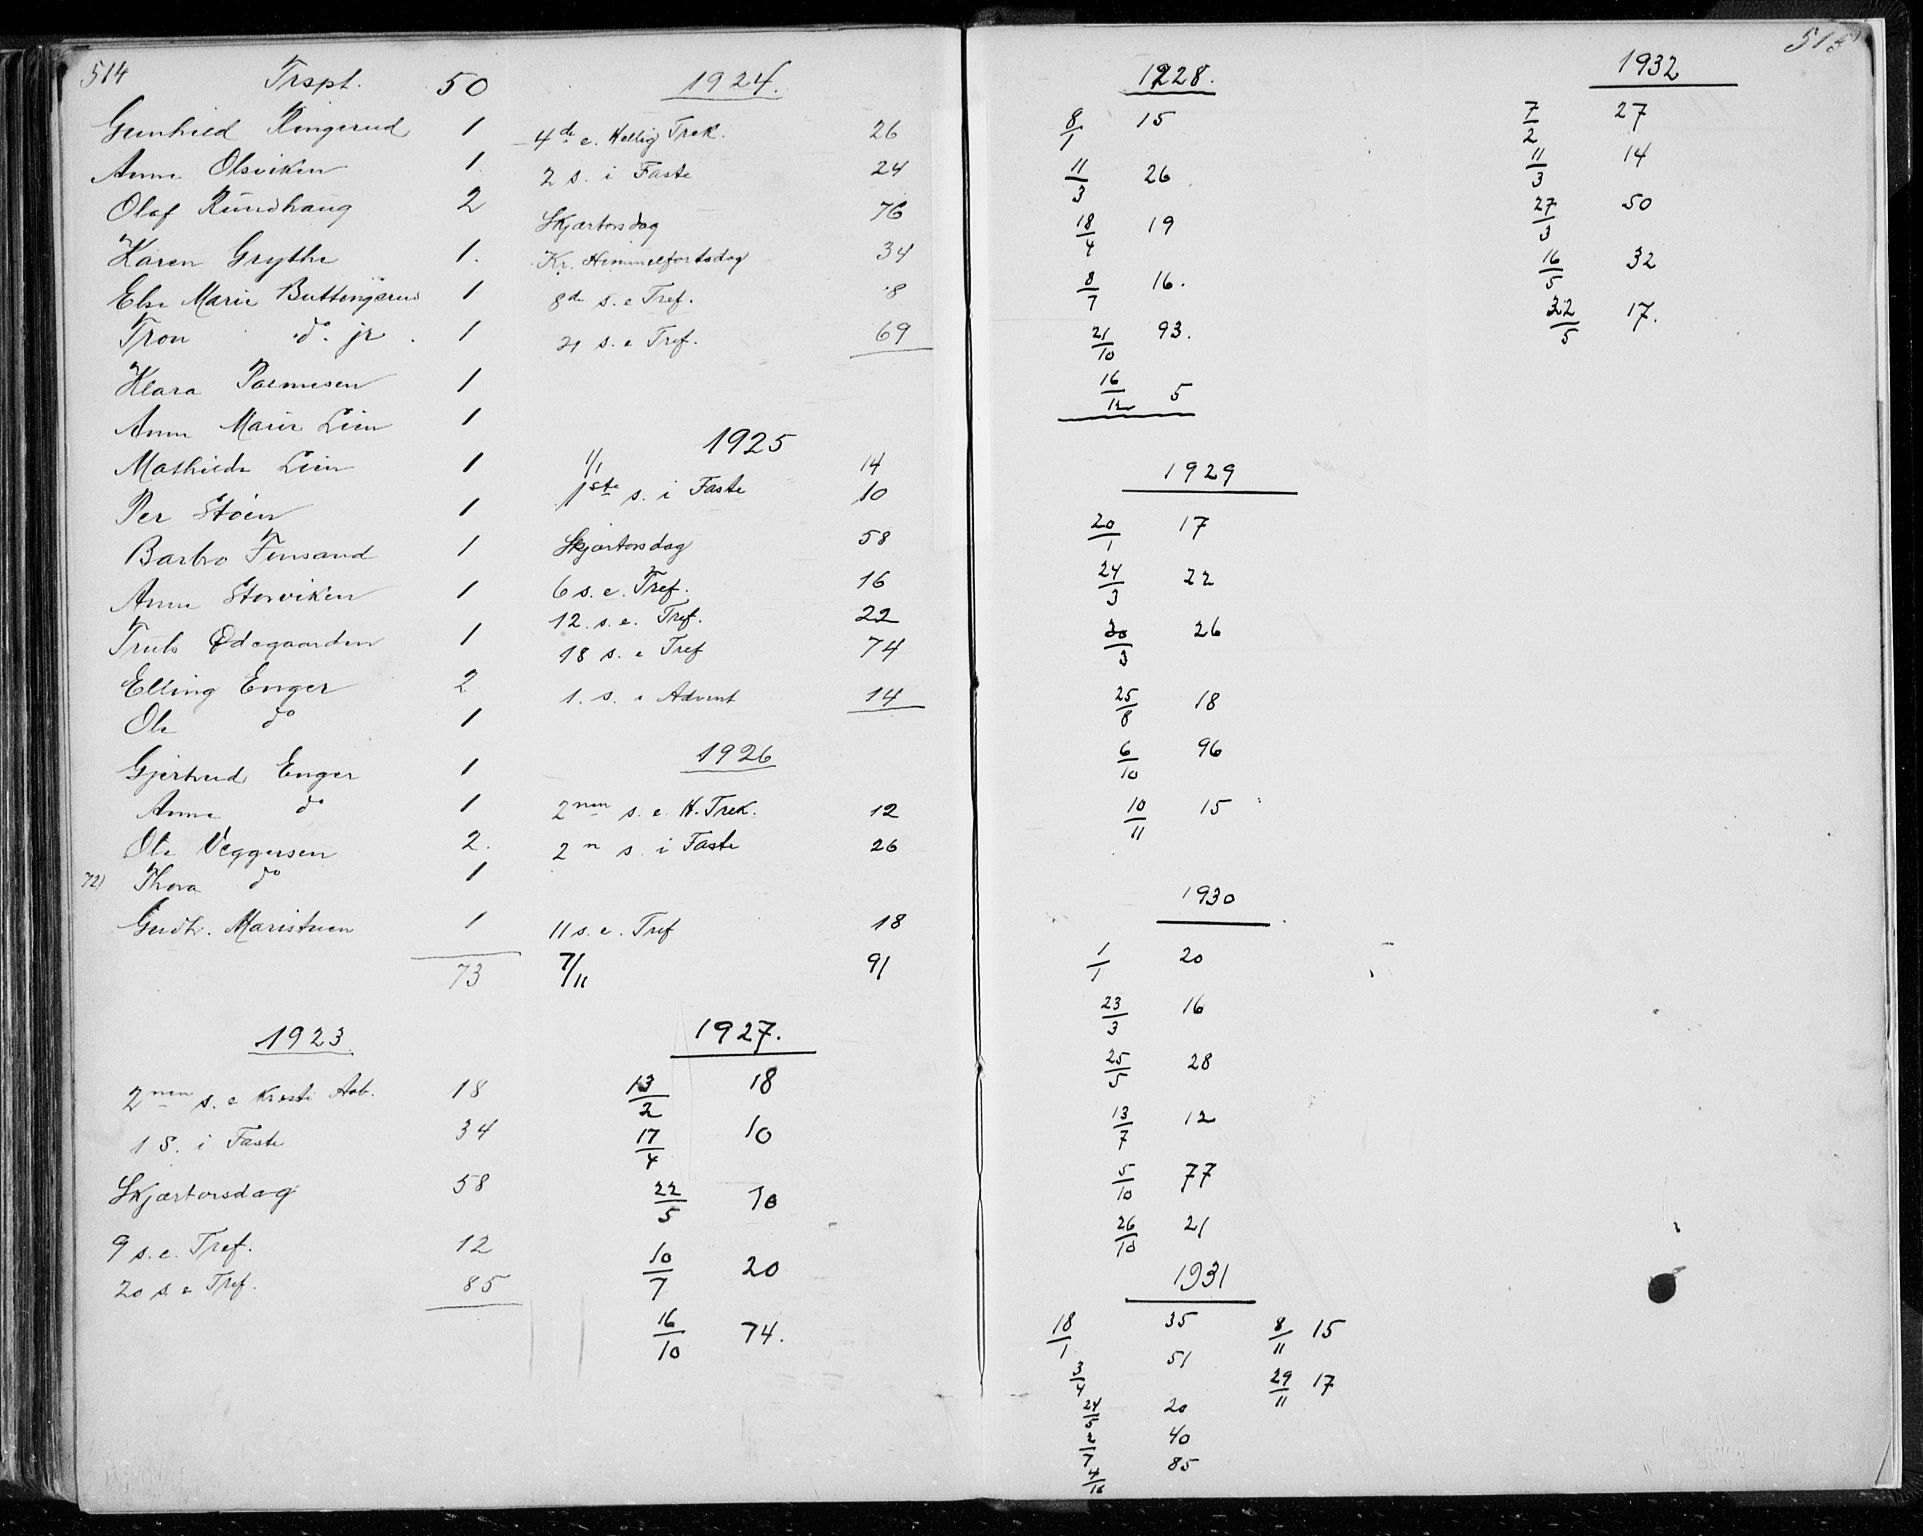 514
Trspt. 50
Gunhild Ringerud 1
Anne Olsviken 1
Olaf Rundhaug 2
Karen Grythe 1.
Else Marie Buttingsrud 1
Tron do. jr. 1
Klara 1
Anne Marie Lien 1
Mathilde Lien 1
Per Støen 1
Barbro Finsand 1
Anne Storviken 1
Truls Ødegaarden 1
Elling Enger 2
Ole do 1
Gjertrud Enger 1
Anne do 1
Ole Veggersen 2.
72) Thora do 1
Gudbr. Maristuen 1
73
1923.
2nen s. e Kristi Aab. 18
1 S. i Faste 34
Skjærtorsdag 58
9 s. e. Tref. 12
20 s. e Tref. 85
1924.
4de e. Hellig Trek. 26
2 s. i Faste 24
Skjærtorsdag 76
Kr. Himmelfartsdag 34
8de s. e Tref. 8
21 s. e Tref. 69
1925
1/1 14
1ste s. i Faste 10
Skjærtorsdag 58
6 s. e. Tref. 16
12. s. e. Tref. 22
18 s. e Tref 74
1. s. i Advent 14
1926
2nen s. e. H. Trek. 12
2n s. i Faste 26
11 s. e. Tref 18
7/11 91
1927.
13/2 18
17/4 10
22/5 10
10/7 20
16/10 74.
515
1928.
8/1 15
11/3 26
18/4 19
8/7 16.
21/10 93.
16/12 5
1929
20/1 17
24/3 22
30/3 26
25/8 18
6/10 96
10/11 15
1930
1/1 20
23/3 16
25/5 28
13/7 12
5/10 77
26/10 21
1931
18/1 35
3/4 51
24/5 20
2/7 40
4/10 85
8/11 15
29/11 17
1932
7/2 27
11/3 14
27/3 50
16/5 32
22/5 17.